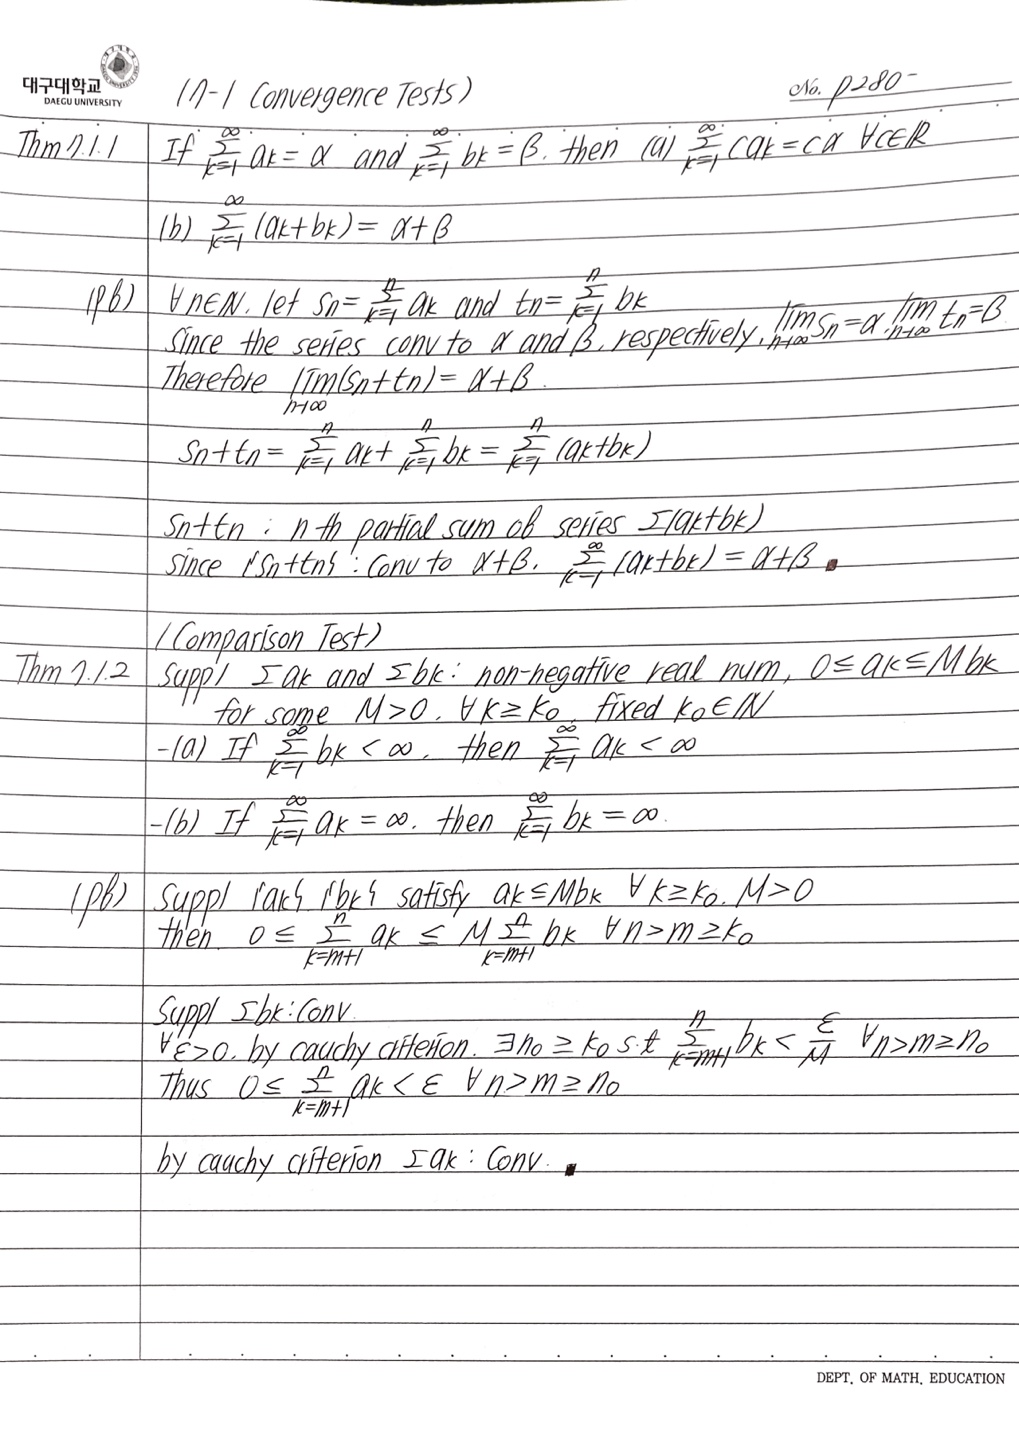 대구대학교
DAEGU UNIVERSITY
(7-1 Convergence Tests)
No. p280-
Thm 7.1.1 If ∑_{k=1}^{∞} ak = α and ∑_{k=1}^{∞} bk = β. then (a) ∑_{k=1}^{∞} cak = cα ∀c∈ℝ
(b) ∑_{k=1}^{∞} (ak+bk) = α+β
(pf) ∀n∈ℕ. let Sn = ∑_{k=1}^{n} ak and tn = ∑_{k=1}^{n} bk
Since the series conv to α and β. respectively, lim_{n→∞} Sn = α. lim_{n→∞} tn = β
Therefore lim_{n→∞} (Sn+tn) = α+β.
Sn+tn = ∑_{k=1}^{n} ak + ∑_{k=1}^{n} bk = ∑_{k=1}^{n} (ak+bk)
Sn+tn : n-th partial sum of series Σ(ak+bk)
since {Sn+tn} : Conv to α+β. ∑_{k=1}^{∞} (ak+bk) = α+β ∎
(Comparison Test)
Thm 7.1.2 Supp) Σak and Σbk : non-negative real num, 0 ≤ ak ≤ Mbk
for some M>0. ∀k≥k₀, fixed k₀∈ℕ
-(a) If ∑_{k=1}^{∞} bk < ∞, then ∑_{k=1}^{∞} ak < ∞
-(b) If ∑_{k=1}^{∞} ak = ∞. then ∑_{k=1}^{∞} bk = ∞.
(pf) Supp) {ak} {bk} satisfy ak ≤ Mbk ∀k≥k₀. M>0
then 0 ≤ ∑_{k=m+1}^{n} ak ≤ M ∑_{k=m+1}^{n} bk ∀n>m≥k₀
Supp) Σbk : Conv.
∀ε>0. by cauchy criterion. ∃n₀ ≥ k₀ s.t ∑_{k=m+1}^{n} bk < ε/M ∀n>m≥n₀
Thus 0 ≤ ∑_{k=m+1}^{n} ak < ε ∀n>m≥n₀
by cauchy criterion Σak : Conv. ∎
DEPT. OF MATH. EDUCATION